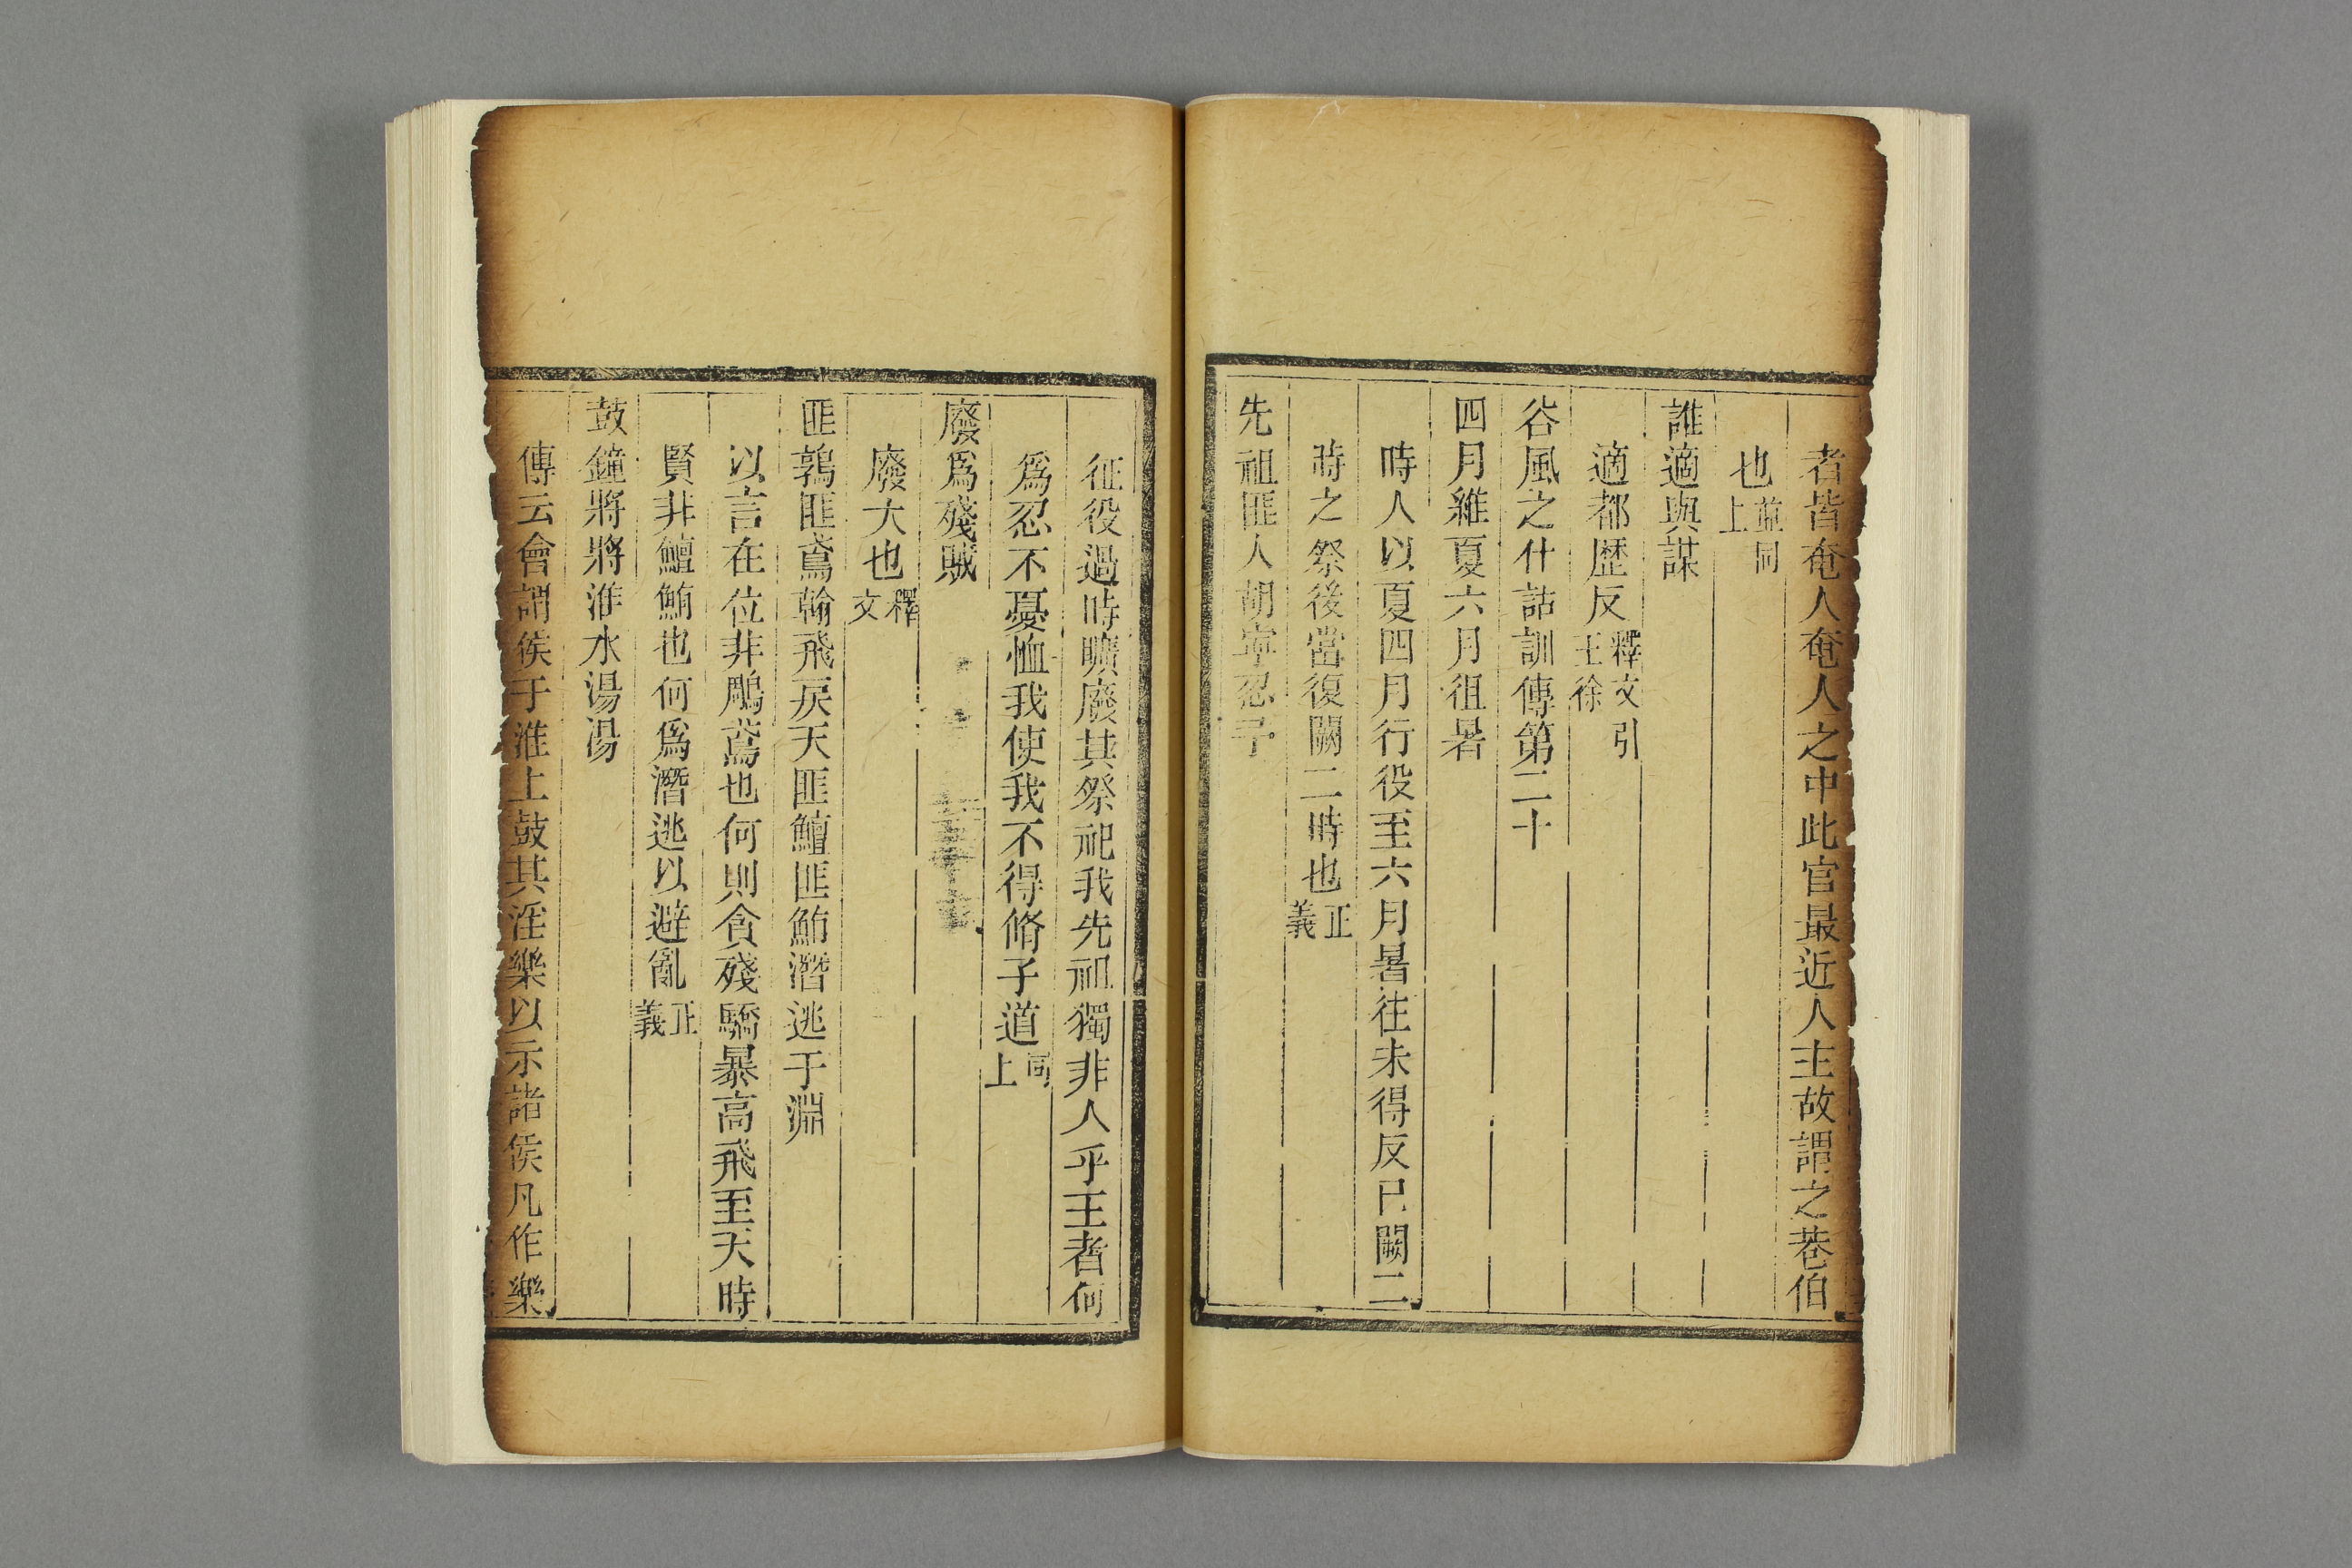 者皆奄人奄人之中此官最近人主故謂之巷伯
也並同上
誰適與謀
適都歴反釋文引王徐
谷風之什詁訓傳第二十
四月維夏六月徂暑
時人以夏四月行役至六月暑往未得反已闕二
時之祭後當復闕二時也正義
先祖匪人胡寧忍予
征役過時曠廢其祭祀我先祖獨非人乎王者何
爲忍不憂恤我使我不得脩子道同上
廢爲殘賊
廢大也釋文
匪鶉匪鳶翰飛戾天匪鱣匪鮪潛逃于淵
以言在位非鵰鳶也何則貪殘驕暴高飛至天時
賢非鱣鮪也何爲潛逃以避亂正義
鼓鐘將將淮水湯湯
傳云會諸侯于淮上鼓其淫樂以示諸侯凡作樂